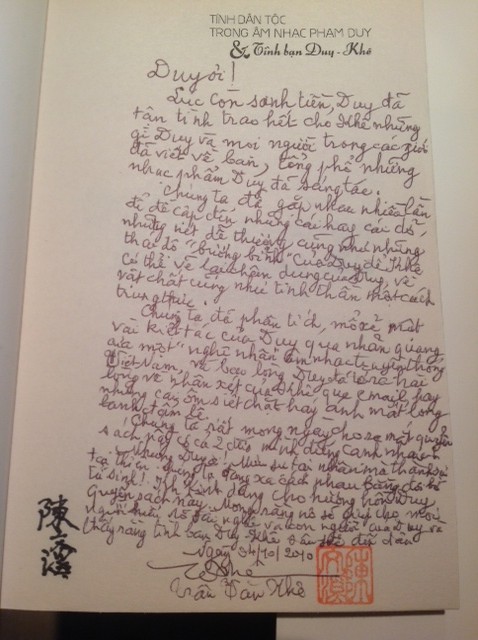 TÍNH DÂN TỘC
TRONG ÂM NHẠC PHẠM DUY
& Tình bạn Duy - Khê
Duy ơi!
Lúc còn sanh tiền, Duy đã
tận tình trao hết cho Khê những
gì Duy và mọi người trong các giới
đã viết về bạn, tổng phổ những
nhạc phẩm Duy đã sáng tác.
Chúng ta đã gặp nhau nhiều lần
để đề cập đến những cái hay cái dở,
những nét dễ thương cũng như những
thái độ "bướng bỉnh" của Duy để Khê
có thể vẽ lại chân dung của Duy, về
vật chất cũng như tinh thần một cách
trung thực.
Chúng ta đã phân tích, mổ xẻ một
vài kiệt tác của Duy qua nhãn quang
của một "nghệ nhân âm nhạc truyền thống
Việt Nam", và bao lần Duy đã tỏ ra hài
lòng về nhận xét của Khê qua email hay
những cái ôm siết chặt hay ánh mắt long
lanh đậm lệ.
Chúng ta rất mong ngày cho ra mắt quyển
sách này có cả 2 đứa mình đứng cạnh nhau
Nhưng Duy ơi! Mưu sự tại nhân mà thành sự
tại thiên. Chúng ta đang xa cách nhau
tử sinh! Khê kính dâng cho hương hồn Duy
quyển sách này. Mong rằng nó sẽ giúp cho mọi
người hiểu rõ tài nghệ và con người của Duy và
thấy rằng tình bạn Duy Khê
Ngày /10/2010
Khê
Trần Văn Khê
陳文